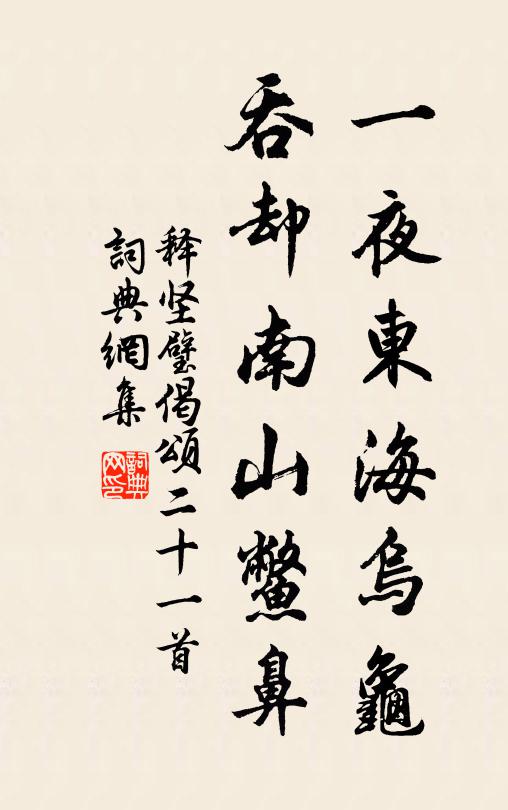 一夜東海烏龜
吞却南山鱉鼻
释坚璧偈頌二十一首
詞典網集
詞典网印